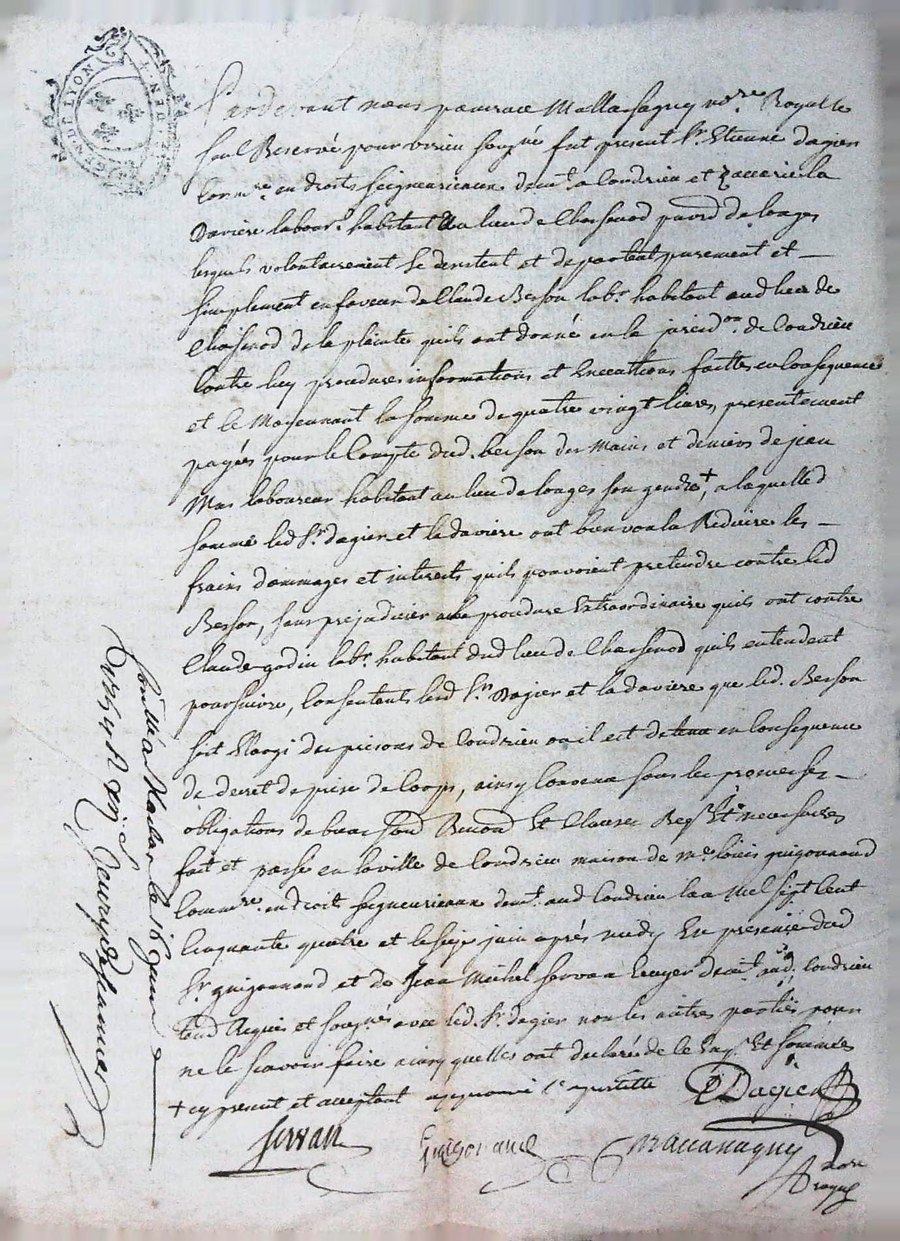 GEN DE LYON
Pardevant nous pancrace Mallassagny no.re Royal le
soul Reservé pour virieu soigné fut present Sr. Etienne dagier
Com.re en droits seigneuriaux dem.t a Condrieu et
Daviere labour.r habitant au lieu de Chassenod parro. de longes
lesquels volontairement se desistent et departent purement et
simplement en faveur de Claude Berson lab.r habitant aud lieu de
Chassenod de la plainte quils ont donné en la jurisd.on de Condrieu
Contre luy procedures informations et Executtions faittes en Consequence
et ce Moyennant la somme de quatre vingt livres presentement
payés pour le Compte dud. berson des Mains et deniers de jean
Mas laboureur habitant au lieu de longes son gendre +, a laquelle d
somme led Sr. dagier et la daviere ont bien voulu Reduire les
frais dommages et interets quils pouvoient pretendre contre led
Berson, sans prejudicier a la procedure Extraordinaire quils ont contre
Claude godin lab.r habitant dud lieu de Chassenod quils entendent
poursuivre, Consentants led Sr. Dagier et la daviere que led. Berson
soit Elargi des prisons de Condrieu ou il est detenu en Consequence
de decret de prise de Corps, ainsy Convenu sous les promesses
obligations de biens soum Renond Et Clauses Req.ses Et necessaires
fait et passé en la ville de Condrieu maison de me. louis guigonnand
Comm.re en droit seigneuriaux dem.t aud Condrieu lan Mil Sept Cent
Cinquante quatre et le seize juin après midy En presence dud
Sr. guigonnand et de Jean Michel Servan Ecuyer dem.t aud. Condrieu
temd Requis et soignés avec led. Sr. dagier non les autres parties pour
ne le scavoir faire ainsy quelles ont declaré de ce Enq.s Et sommées
+ cy present et acceptant approuvé l'apostille
Dagier
Servan
Guigonand
Mallassagny
no.re
royal
Controllé a Condrieu le 16 juin